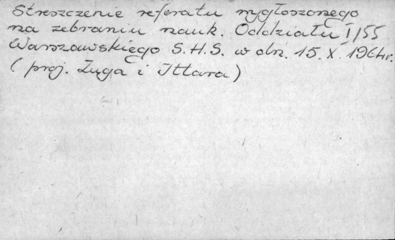 Streszczenie referatu wygłoszonego
na zebraniu nauk. Oddziału I/55
Warszawskiego S.H.S. w dn. 15.X.1964r.
(proj. Zuga i Ittara)